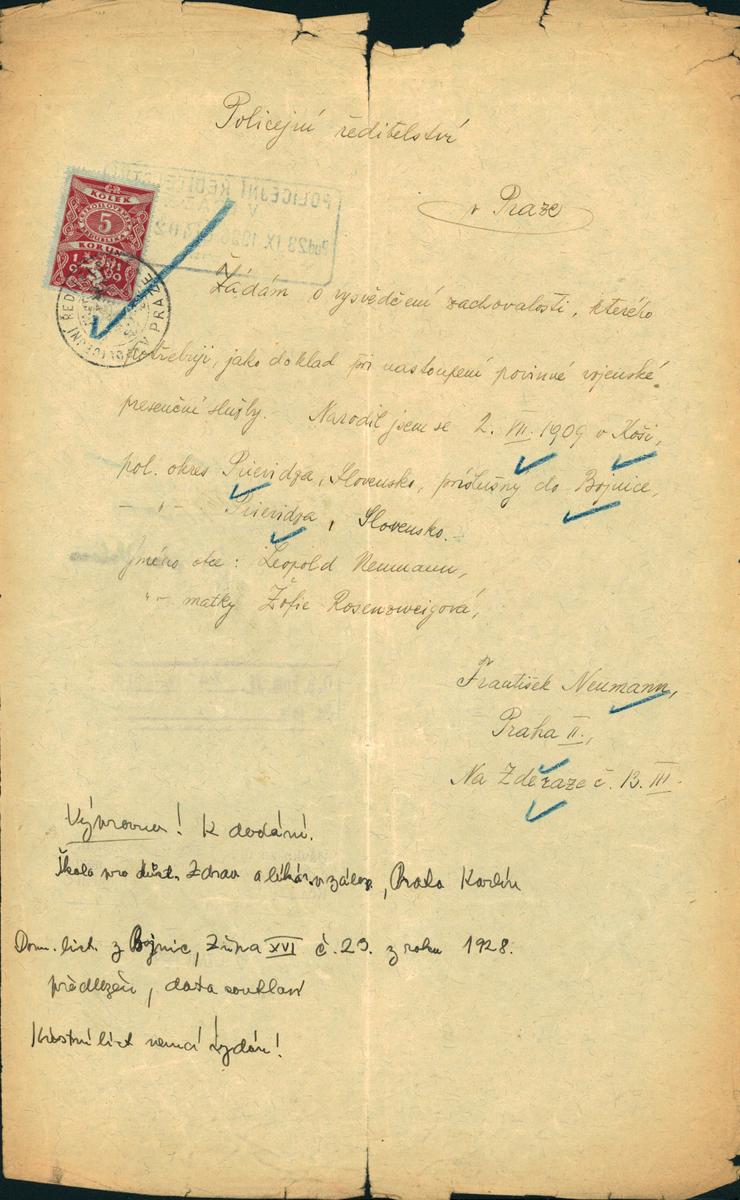 Policejní ředitelství
v Praze
KOLEK
5
KORUN
POLICEJNÍ ŘEDITELSTVÍ
V PRAZE
23 IX. 1930
Žádám o vysvědčení zachovalosti, kterého
potřebuji, jako doklad při nastoupení povinné vojenské
presenční služby. Narodil jsem se 2. VII. 1909 v Koši,
pol. okres Prievidza, Slovensko, příslušný do Bojnice,
– " – Prievidza, Slovensko.
Jméno otce: Leopold Neumann,
" – matky Žofie Rosenzweigová,
František Neumann,
Praha II.,
Na Zderaze č. 13. III.
K dodání.
Škola pro důst. zdrav a lékár. v záloze, Praha Karlín
Dom. list. z Bojnic, Župa XVI č. 29. z roku 1928.
předložen, data souhlasí
Křestní list nemá vydán!